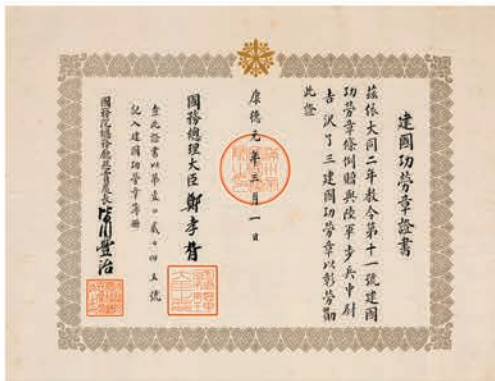 建國功勞章證書
茲依大同二年教令第十一號建國
功勞章條例贈與陸軍步兵中尉
吉沢了三建國功勞章以彰勞勳
此證
康德元年三月一日
國務總理大臣 鄭孝胥
查此證書以第壹〇貳〇四五號
記入建國功勞章簿冊
國務院總務廳恩賞處長 皆川豐治